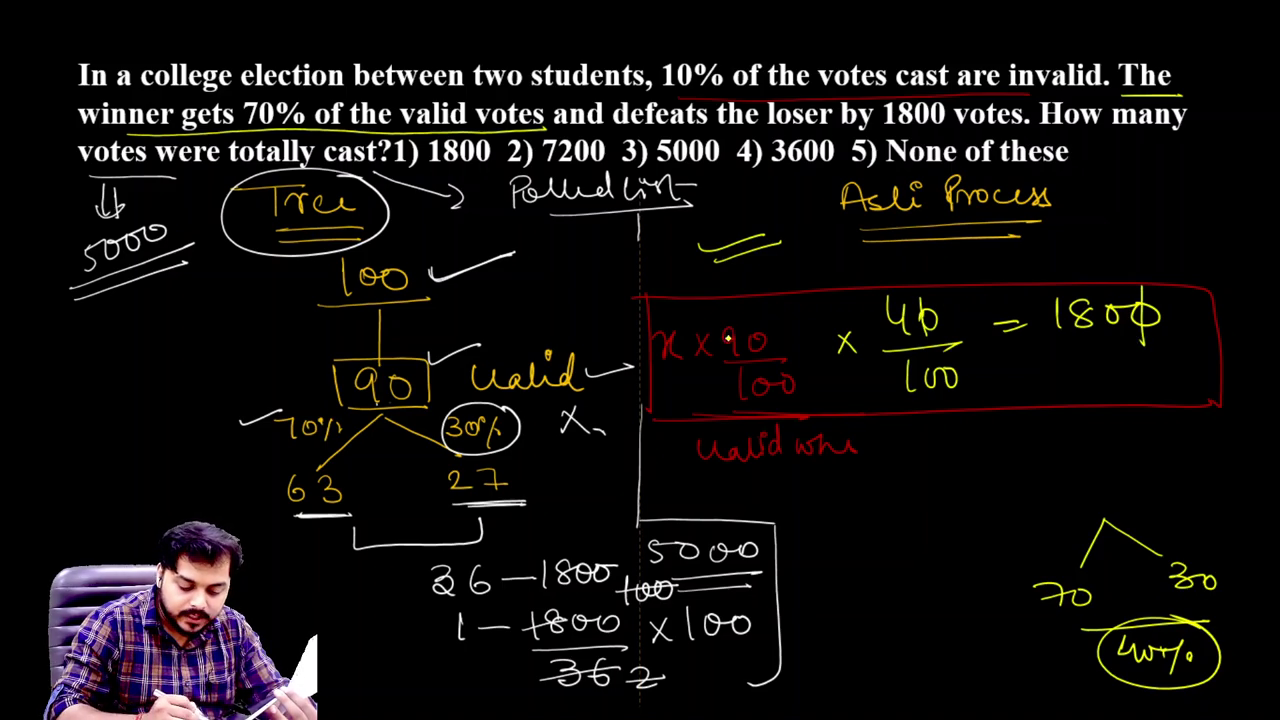 In a college election between two students, 10% of the votes cast are invalid. The
winner gets 70% of the valid votes and defeats the loser by 1800 votes. How many
votes were totally cast?1) 1800 2) 7200 3) 5000 4) 3600 5) None of these
Tree
Polled
Asli Process
5000
100
90 valid
70% 30% X
63 27
x × 90/100 × 40/100 = 1800
valid
36 — 1800
1 — 1800/36 × 100
100
5000
2
70 30
40%